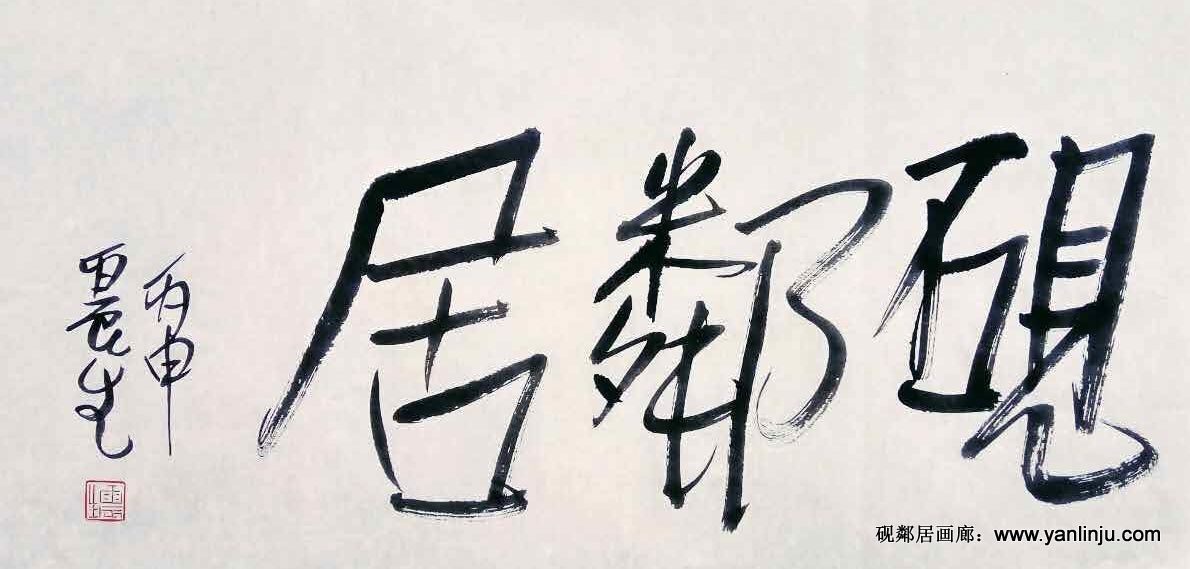 硯鄰居
丙申
曇生
砚鄰居画廊：www.yanlinju.com